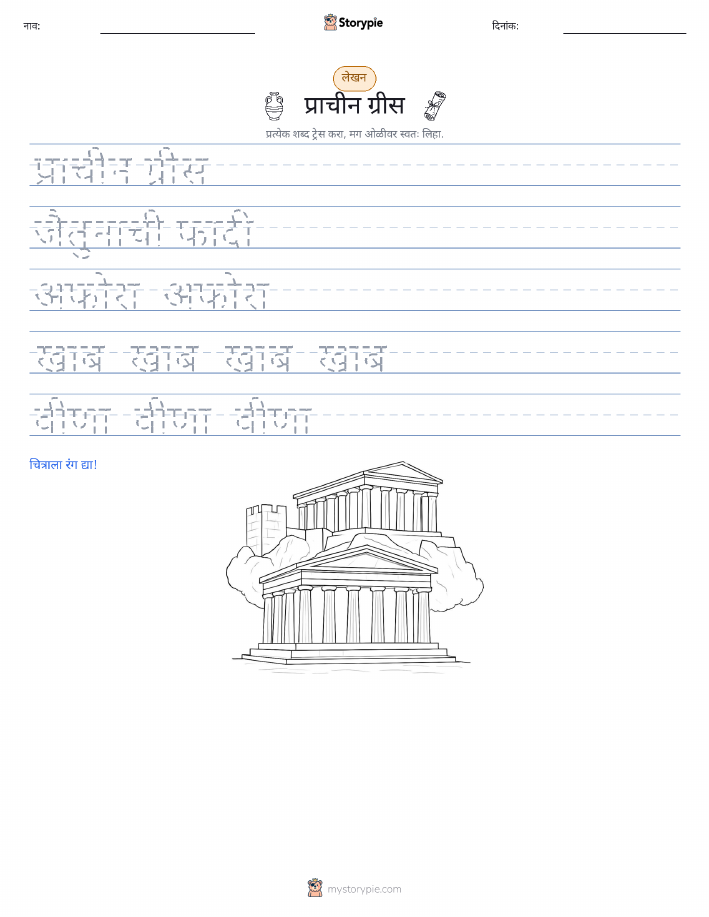 नाव:
Storypie
दिनांक:
लेखन
प्राचीन ग्रीस
प्रत्येक शब्द ट्रेस करा, मग ओळीवर स्वतः लिहा.
प्राचीन ग्रीस
जैतुनाची फांदी
अफोरा अफोरा
खांब खांब खांब खांब
वीणा वीणा वीणा
चित्राला रंग द्या!
mystorypie.com